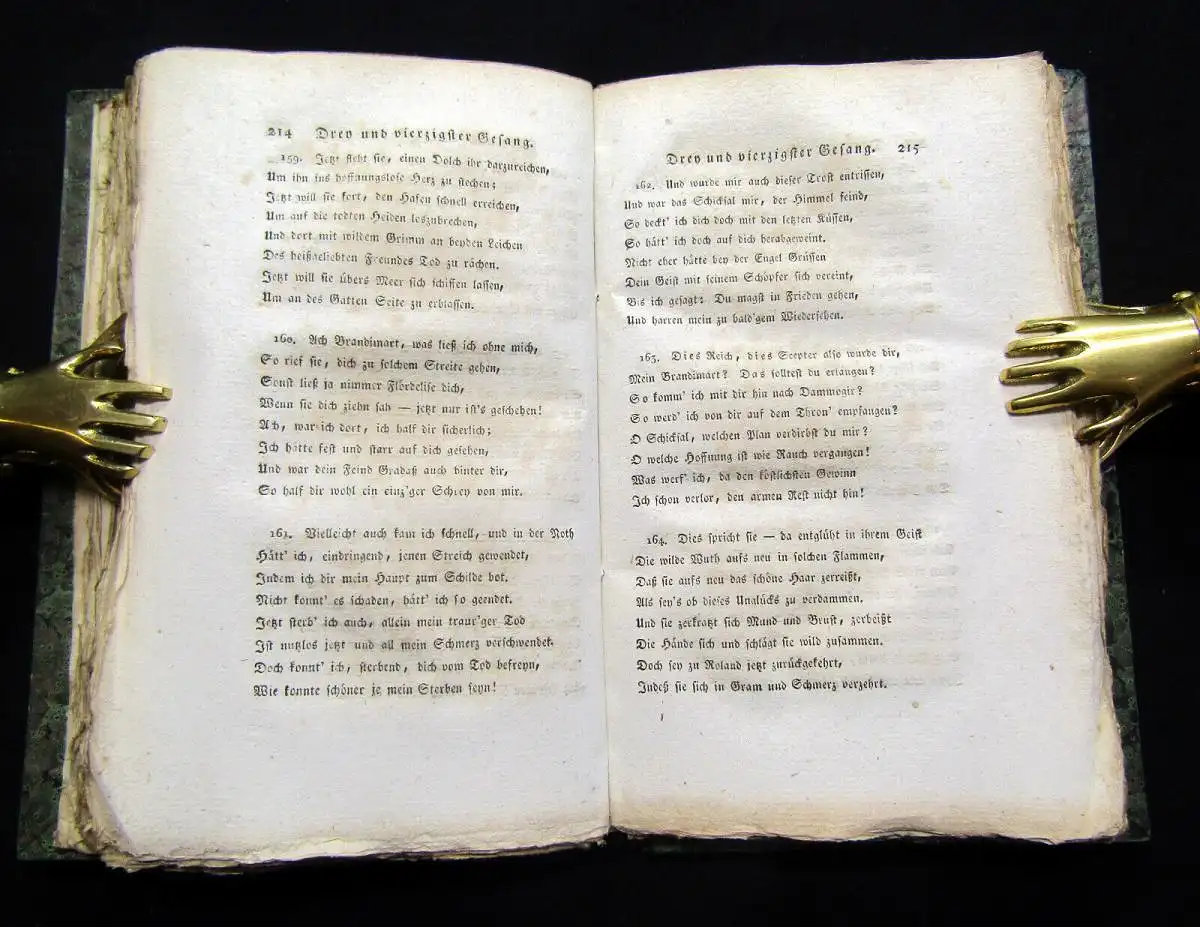 214 Drey und vierzigster Gesang.
159. Jetzt fleht sie, einen Dolch ihr darzureichen,
Um ihn ins hoffnungslose Herz zu stechen;
Jetzt will sie fort, den Hafen schnell erreichen,
Um auf die todten Heiden loszubrechen,
Und dort mit wildem Grimm an beyden Leichen
Des heißgeliebten Freundes Tod zu rächen.
Jetzt will sie übers Meer sich schiffen lassen,
Um an des Gatten Seite zu erblassen.
160. Ach Brandimart, was ließ ich ohne mich,
So rief sie, dich zu solchem Streite gehen,
Sonst ließ ja nimmer Flördelise dich,
Wenn sie dich ziehn sah — jetzt nur ist's geschehen!
Ach, war ich dort, ich half dir sicherlich;
Ich hätte fest und starr auf dich gesehen,
Und war dein Feind Gradaß auch hinter dir,
So half dir wohl ein einz'ger Schrey von mir.
161. Vielleicht auch kam ich schnell, und in der Noth
Hätt' ich, eindringend, jenen Streich gewendet,
Indem ich dir mein Haupt zum Schilde bot.
Nicht konnt' es schaden, hätt' ich so geendet.
Jetzt sterb' ich auch, allein mein traur'ger Tod
Ist nutzlos jetzt und all mein Schmerz verschwendet.
Doch konnt' ich, sterbend, dich vom Tod befreyn,
Wie konnte schöner je mein Sterben seyn!
Drey und vierzigster Gesang. 215
162. Und wurde mir auch dieser Trost entrissen,
Und war das Schicksal mir, der Himmel feind,
So deckt' ich dich doch mit den letzten Küssen,
So hätt' ich doch auf dich herabgeweint.
Nicht eher hätte bey der Engel Grüssen
Dein Geist mit seinem Schöpfer sich vereint,
Bis ich gesagt: Du magst in Frieden gehen,
Und harren mein zu bald'gem Wiedersehen.
163. Dies Reich, dies Scepter also wurde dir,
Mein Brandimart? Das solltest du erlangen?
So komm' ich mit dir hin nach Dammogir?
So werd' ich von dir auf dem Thron' empfangen?
O Schicksal, welchen Plan verdirbst du mir?
O welche Hoffnung ist wie Rauch vergangen!
Was werf' ich, da den köstlichsten Gewinn
Ich schon verlor, den armen Rest nicht hin!
164. Dies spricht sie — da entglüht in ihrem Geist
Die wilde Wuth aufs neu in solchen Flammen,
Daß sie aufs neu das schöne Haar zerreißt,
Als sey's ob dieses Unglücks zu verdammen.
Und sie zerkratzt sich Mund und Brust, zerbeißt
Die Hände sich und schlägt sie wild zusammen.
Doch sey zu Roland jetzt zurückgekehrt,
Indeß sie sich in Gram und Schmerz verzehrt.